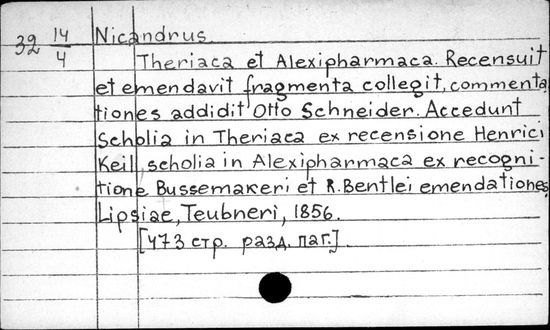 32 14/4 Nicandrus
Theriaca et Alexipharmaca. Recensuit
et emendavit fragmenta collegit, commenta
tiones addidit Otto Schneider. Accedunt
Scholia in Theriaca ex recensione Henrici
Keil, scholia in Alexipharmaca ex recogni-
tione Bussemakeri et R. Bentlei emendationes,
Lipsiae, Teubneri, 1856.
[473 стр. разд. паг.]